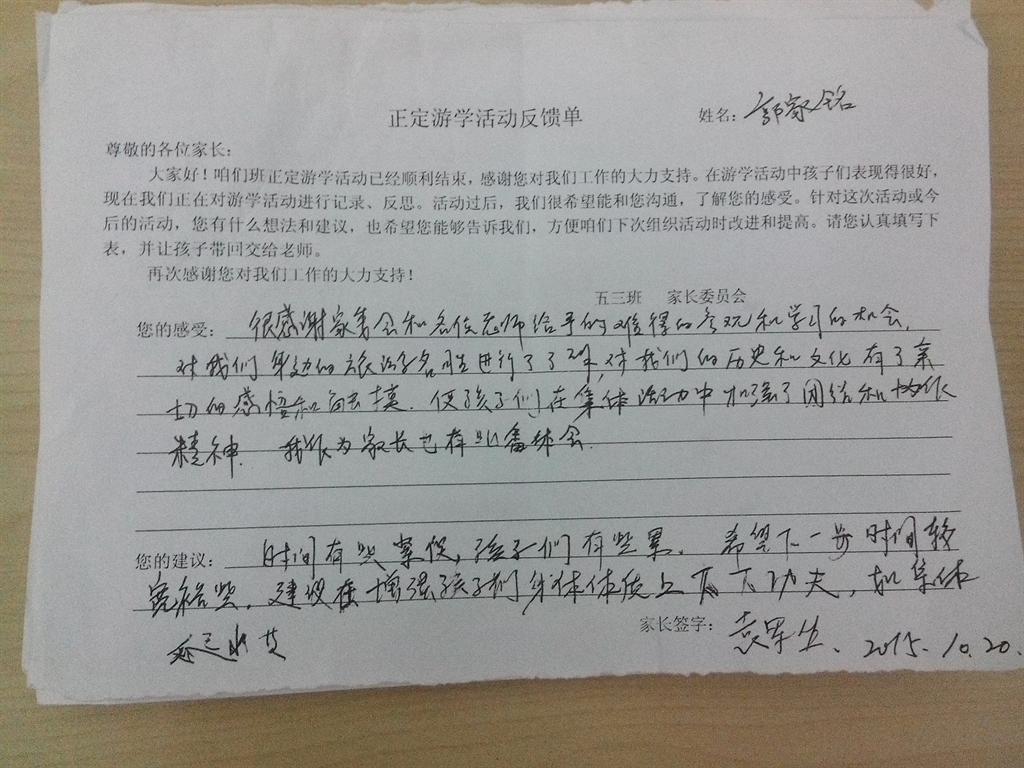 正定游学活动反馈单
姓名：郭家铭
尊敬的各位家长：
大家好！咱们班正定游学活动已经顺利结束，感谢您对我们工作的大力支持。在游学活动中孩子们表现得很好，
现在我们正在对游学活动进行记录、反思。活动过后，我们很希望能和您沟通，了解您的感受。针对这次活动或今
后的活动，您有什么想法和建议，也希望您能够告诉我们，方便咱们下次组织活动时改进和提高。请您认真填写下
表，并让孩子带回交给老师。
再次感谢您对我们工作的大力支持！
五三班 家长委员会
您的感受：很感谢家委会和各位老师给予的难得的参观和学习的机会，
对我们身边的旅游名胜进行了了解，对我们的历史和文化有了亲
切的感悟和触摸。使孩子们在集体活动中加强了团结和协作
精神。我作为家长也有此番体会。
您的建议：时间有些紧促，孩子们有些累。希望下一步时间较
宽裕些，建议在增强孩子们身体体质上下下功夫，如集体
家长签字：袁军生、2015.10.20.